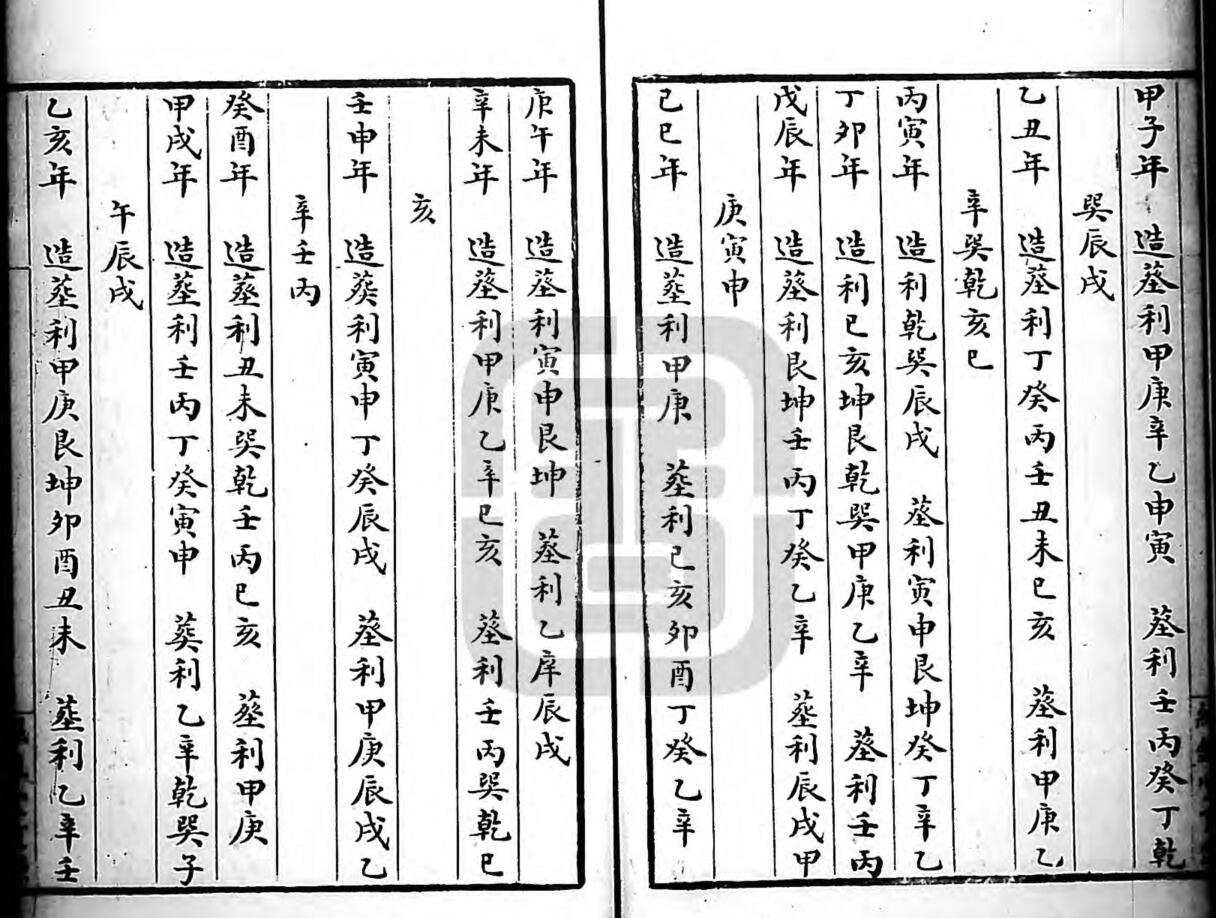 甲子年 造塟利甲庚辛乙申寅 塟利壬丙癸丁乾
巽辰戌
乙丑年 造塟利丁癸丙壬丑未巳亥 塟利甲庚乙
辛巽乾亥巳
丙寅年 造利乾巽辰戌 塟利寅申艮坤癸丁辛乙
丁卯年 造利巳亥坤艮乾巽甲庚乙辛 塟利壬丙
戊辰年 造塟利艮坤壬丙丁癸乙辛 塟利辰戌甲
庚寅申
己巳年 造塟利甲庚 塟利巳亥卯酉丁癸乙辛
庚午年 造塟利寅申艮坤 塟利乙辛辰戌
辛未年 造塟利甲庚乙辛巳亥 塟利壬丙巽乾巳
亥
壬申年 造葬利寅申丁癸辰戌 塟利甲庚辰戌乙
辛壬丙
癸酉年 造塟利丑未巽乾壬丙巳亥 塟利甲庚
甲戌年 造塟利壬丙丁癸寅申 葬利乙辛乾巽子
午辰戌
乙亥年 造塟利甲庚艮坤卯酉丑未 塟利乙辛壬